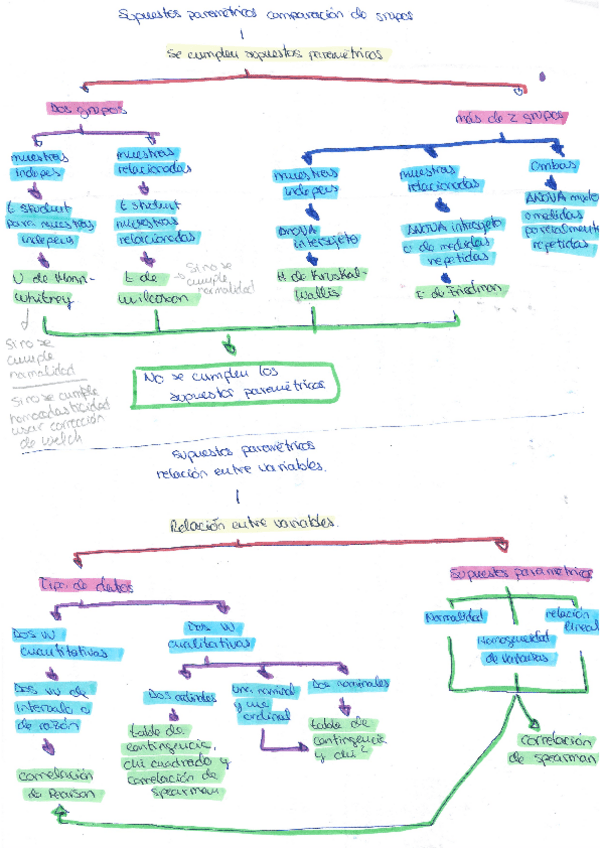 Supuestos paramétricos comparación de grupos
Se cumplen supuestos paramétricos
Dos grupos
más de 2 grupos
muestras
indeps
muestras
relacionadas
muestras
indeps
muestras
relacionadas
Ambas
t student
para muestras
indeps
t student
muestras
relacionadas
ANOVA
intersujeto
ANOVA intrasujeto
o de medidas
repetidas
ANOVA mixto
o medidas
parcialmente
repetidas
U de Mann-
Whitney
t de
wilcoxon
Si no se
cumple
normalidad
H de Kruskal-
Wallis
t de Friedman
Si no se
cumple
normalidad
Si no se cumple
homocedasticidad
usar corrección
de welch
No se cumplen los
supuestos paramétricos
Supuestos paramétricos
relación entre variables.
Relación entre variables.
Tipo de datos
Supuestos paramétricos
Dos VV
cuantitativas
Dos VV
cualitativas
Normalidad
Homogeneidad
de varianzas
relación
lineal
Dos VV de
intervalo o
de razón
Dos ordinales
Una nominal
y una
ordinal
Dos nominales
correlación
de Pearson
tabla de
contingencia,
chi cuadrado y
correlación de
spearman
tabla de
contingencia
y chi²
correlación
de spearman